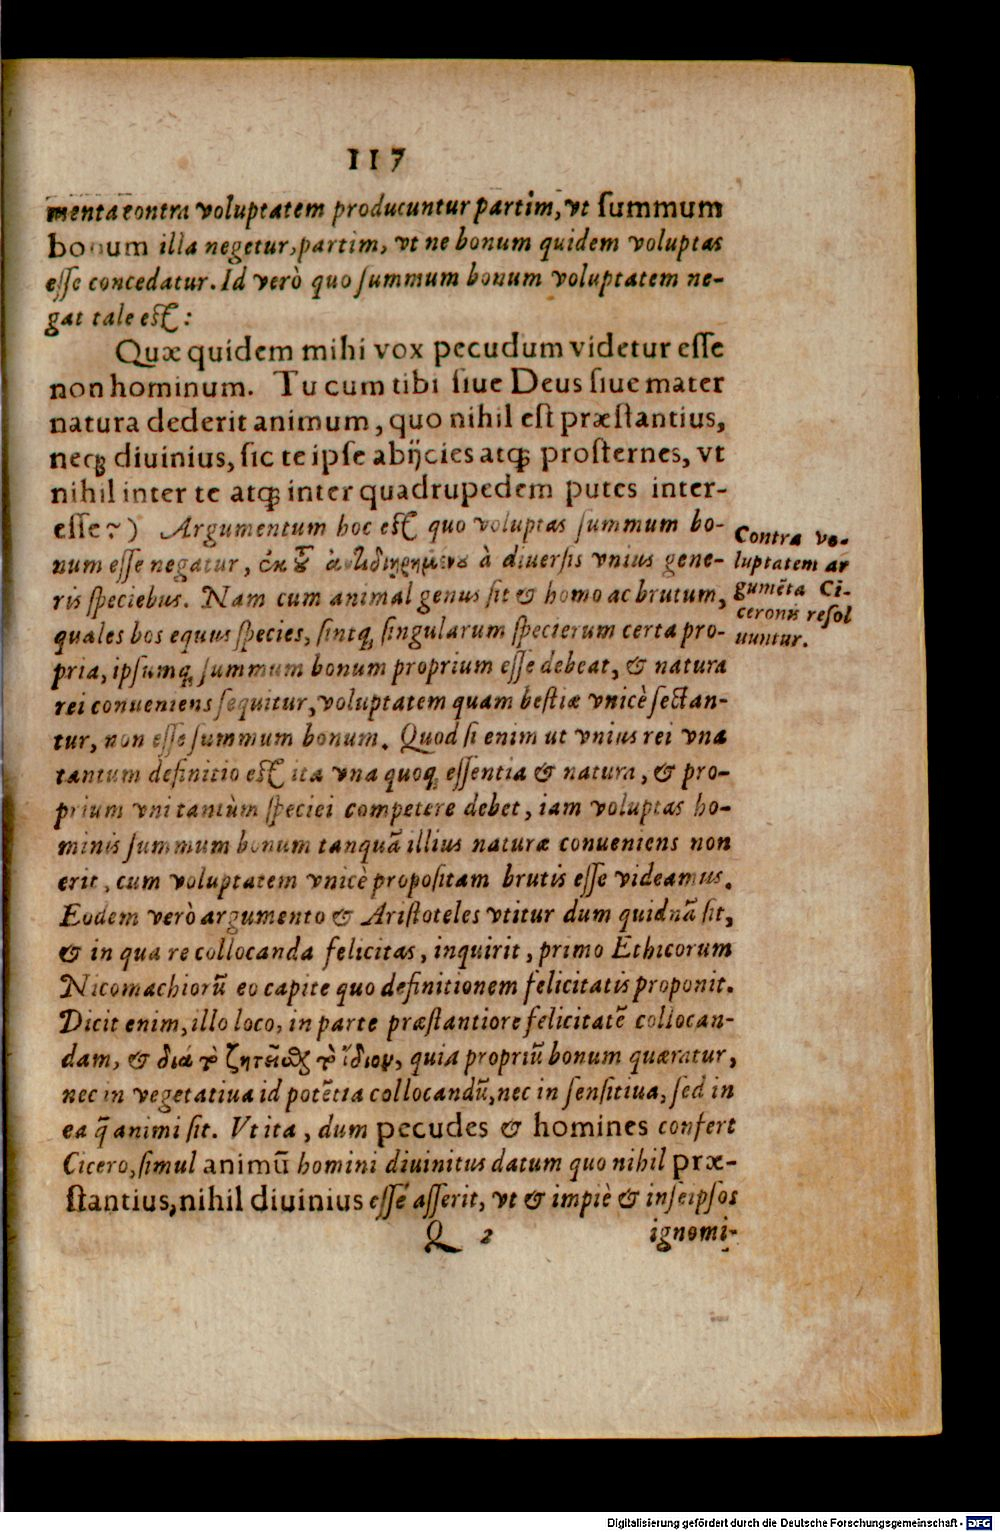 117
menta contra voluptatem producuntur partim, vt summum
bonum illa negetur, partim, vt ne bonum quidem voluptas
eſſe concedatur. Id verò quo ſummum bonum voluptatem ne-
gat tale eſt:
Quæ quidem mihi vox pecudum videtur eſſe
non hominum. Tu cum tibi ſiue Deus ſiue mater
natura dederit animum, quo nihil eſt præſtantius,
neq; diuinius, ſic te ipſe abijcies atq; proſternes, vt
nihil inter te atq; inter quadrupedem putes inter-
eſſe?) Argumentum hoc eſt quo voluptas ſummum bo-
num eſſe negatur, ἐκ τοῦ à diuerſis vnius gene-
ris ſpeciebus. Nam cum animal genus ſit & homo ac brutum,
quales bos equus ſpecies, ſintq; ſingularum ſpecierum certa pro-
pria, ipſumq; ſummum bonum proprium eſſe debeat, & natura
rei conueniens ſequitur, voluptatem quam beſtiæ vnicè ſectan-
tur, non eſſe ſummum bonum. Quod ſi enim ut vnius rei vna
tantum definitio eſt ita vna quoq; eſſentia & natura, & pro-
prium vni tantùm ſpeciei competere debet, iam voluptas ho-
minis ſummum bonum tanquã illius naturæ conueniens non
erit, cum voluptatem vnicè propoſitam brutis eſſe videamus.
Eodem verò argumento & Ariſtoteles vtitur dum quidnã ſit,
& in qua re collocanda felicitas, inquirit, primo Ethicorum
Nicomachiorũ eo capite quo definitionem felicitatis proponit.
Dicit enim, illo loco, in parte præſtantiore felicitatẽ collocan-
dam, & διὰ τὸ ζητεῖσθαι τὸ ἴδιον, quia propriũ bonum quæratur,
nec in vegetatiua id potẽtia collocandũ, nec in ſenſitiua, ſed in
ea q̃ animi ſit. Vt ita, dum pecudes & homines confert
Cicero, ſimul animũ homini diuinitus datum quo nihil præ-
ſtantius, nihil diuinius eſſe aſſerit, vt & impiè & in ſeipſos
Q 2 ignomi-
Contra vo-
luptatem ar
gumẽta Ci-
ceronis reſol
uuntur.
Digitalisierung gefördert durch die Deutsche Forschungsgemeinschaft - DFG